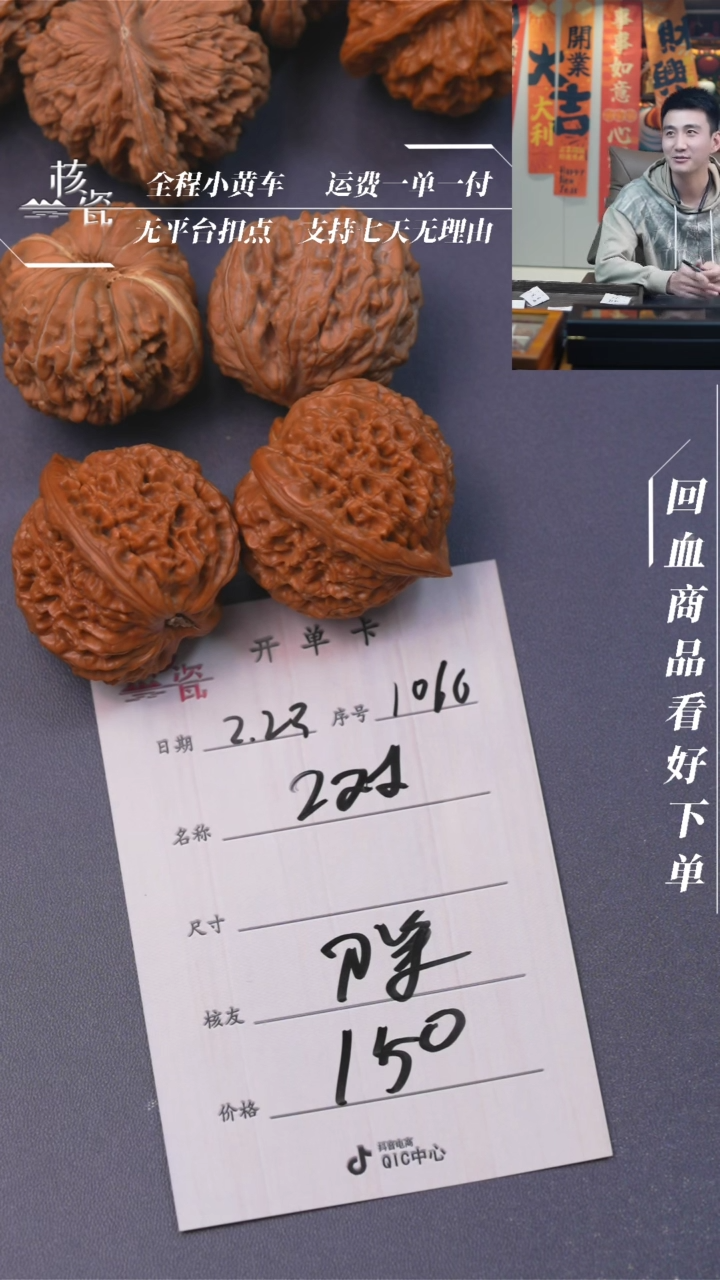 核瓷
全程小黄车 运费一单一付
无平台扣点 支持七天无理由
開業
大吉
大利
事事如意
心
财興
回血商品看好下单
开单卡
瓷
日期 2.23 序号 1060
名称 2对
尺寸
核友
价格 150
抖音电商
QIC中心